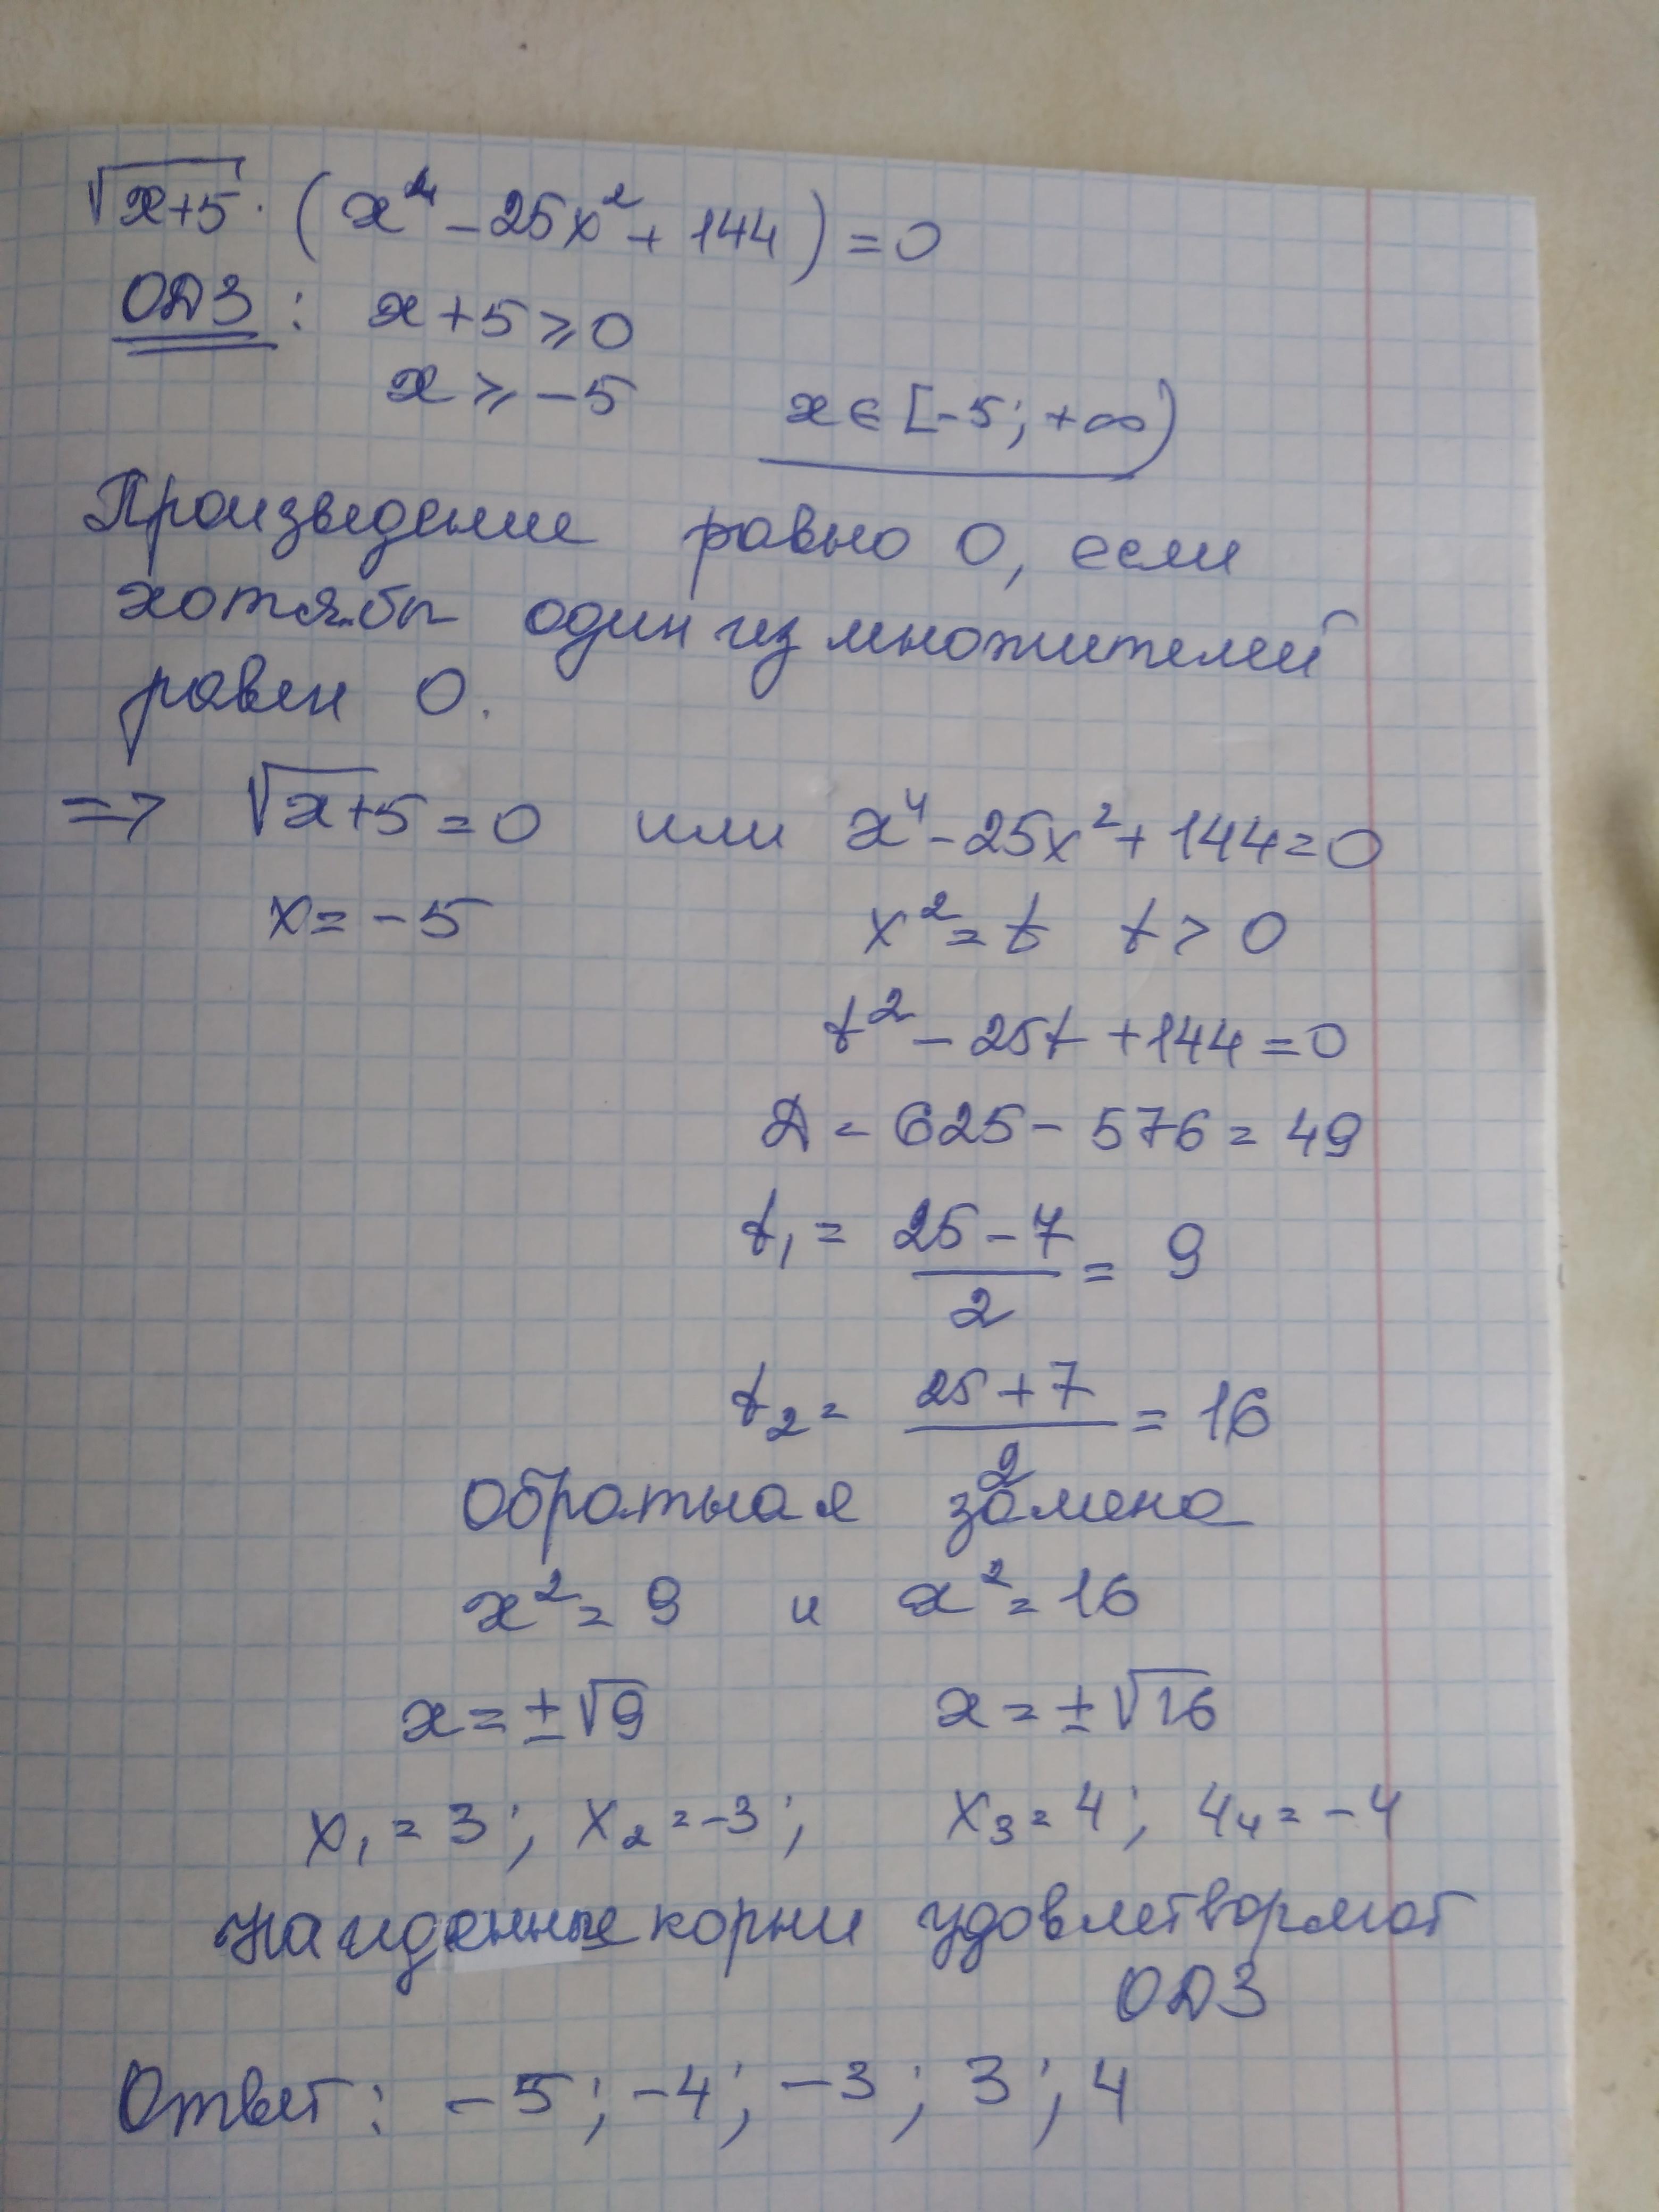 √x+5 · (x⁴ - 25x² + 144) = 0
ОДЗ : x + 5 ⩾ 0
x ⩾ -5 x ∈ [-5; +∞)
Произведение равно 0, если
хотя бы один из множителей
равен 0.
=> √x+5 = 0 или x⁴ - 25x² + 144 = 0
x = -5 x² = t t > 0
t² - 25t + 144 = 0
Д = 625 - 576 = 49
t₁ = (25 - 7)/2 = 9
t₂ = (25 + 7)/2 = 16
Обратная замена
x² = 9 и x² = 16
x = ±√9 x = ±√16
x₁ = 3; x₂ = -3; x₃ = 4; 4₄ = -4
Найденные корни удовлетворяют
ОДЗ
Ответ: -5; -4; -3; 3; 4